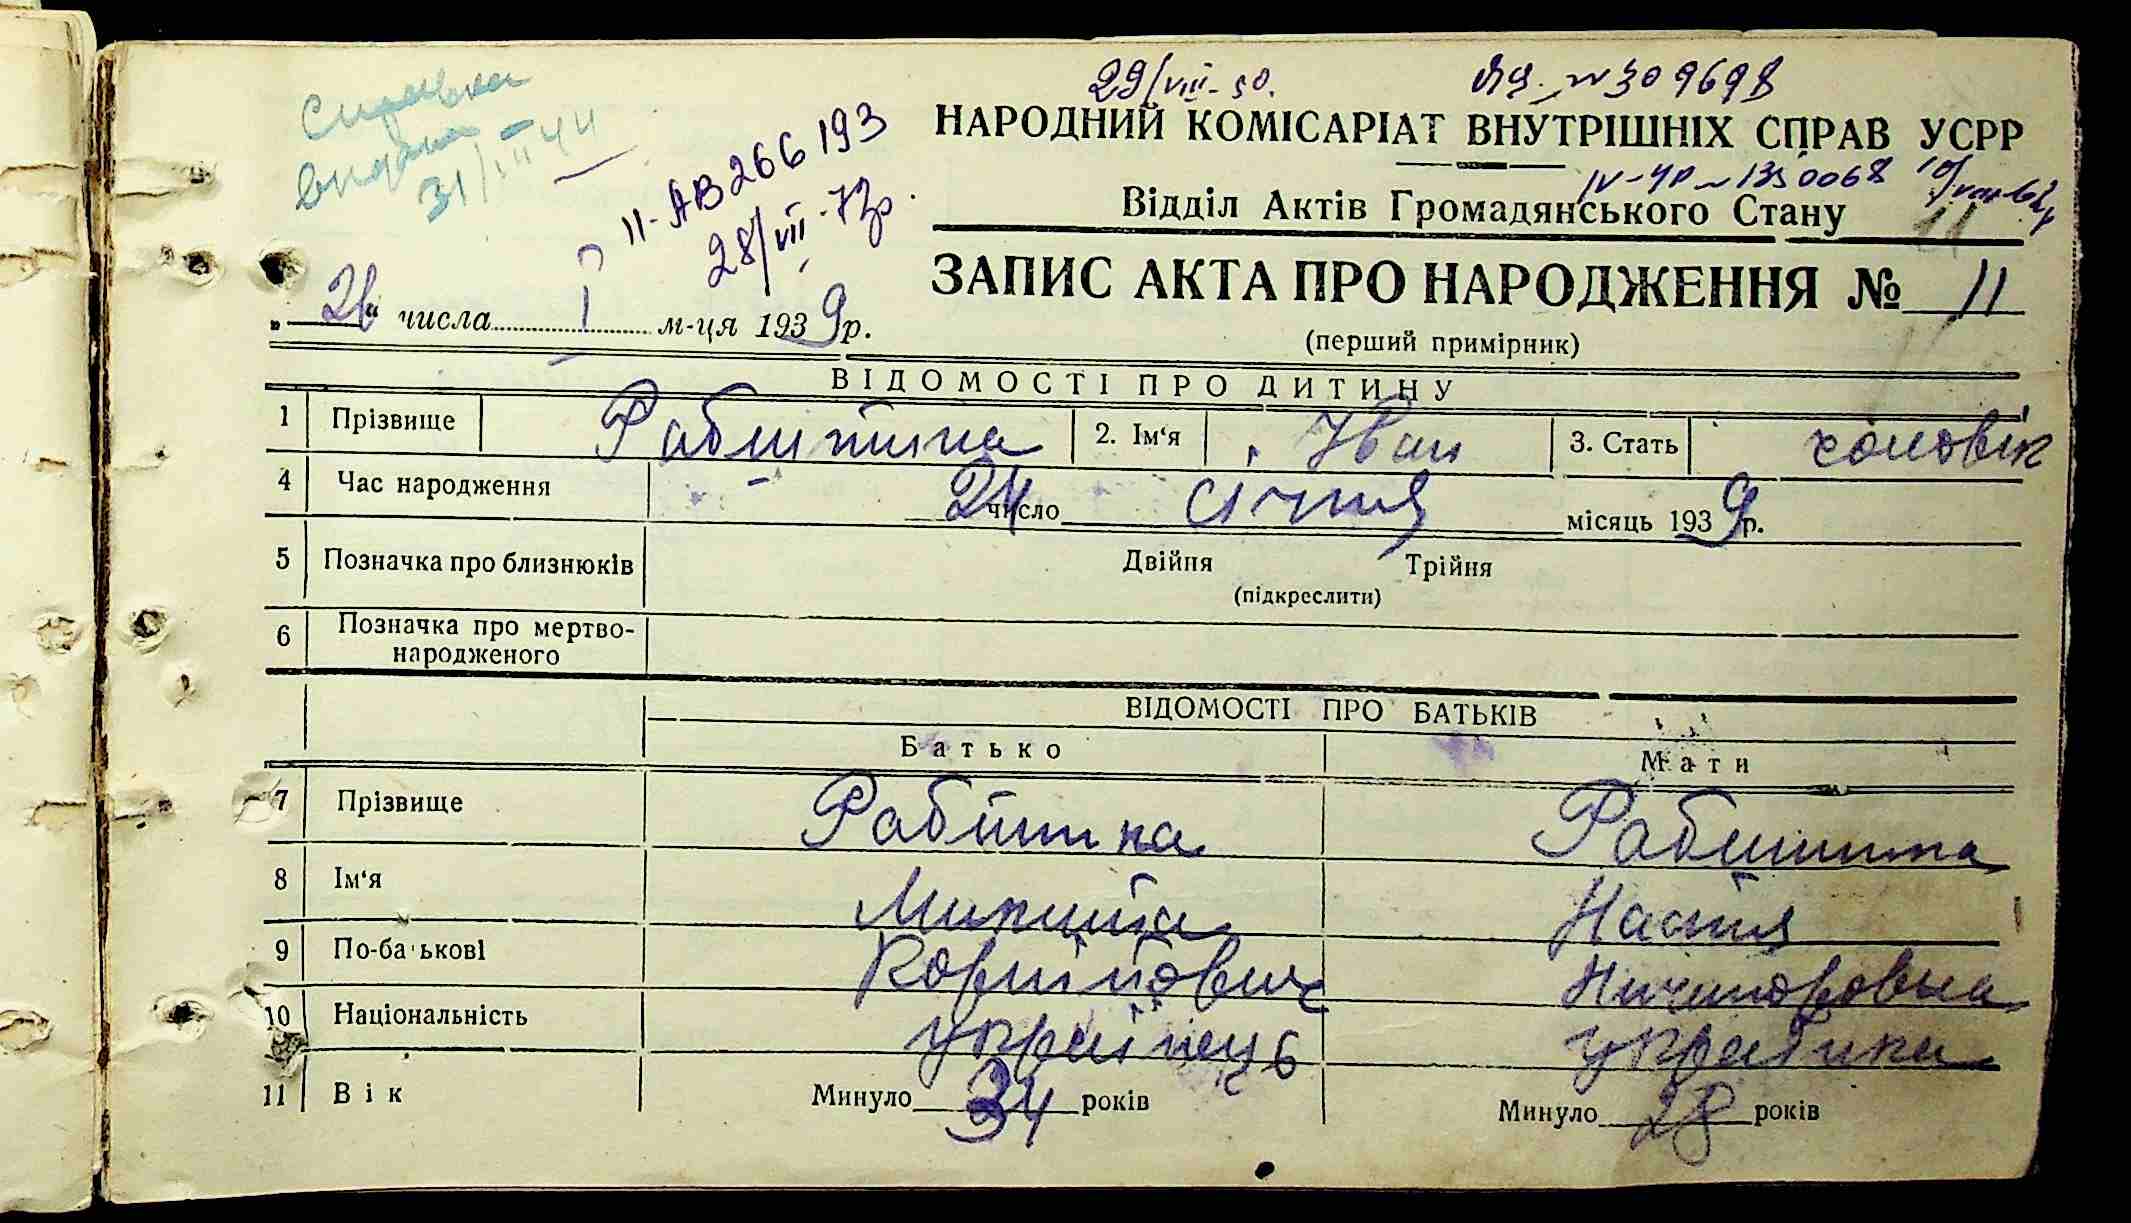 Справка
видана
31/VII 44
29/VIII-50.
II-АВ 266193
28/VII-73р.
НАРОДНИЙ КОМІСАРІАТ ВНУТРІШНІХ СПРАВ УСРР
Відділ Актів Громадянського Стану
11
ЗАПИС АКТА ПРО НАРОДЖЕННЯ № 11
(перший примірник)
„26“ числа I м-ця 1939р.
ВІДОМОСТІ ПРО ДИТИНУ
1 Прізвище 2. Ім‘я Іван 3. Стать чоловік
4 Час народження 24 число січня місяць 1939р.
5 Позначка про близнюків Двійня Трійня
(підкреслити)
6 Позначка про мертво-
народженого
ВІДОМОСТІ ПРО БАТЬКІВ
Батько Мати
7 Прізвище
8 Ім‘я Микита Настя
9 По-батькові Корнійович Ничипоровна
10 Національність українець українка
11 Вік Минуло 34 років Минуло 28 років